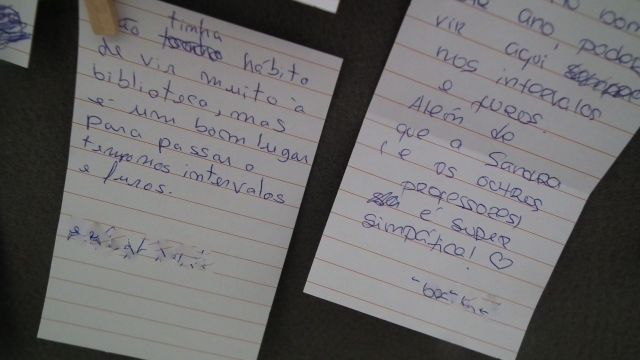 tinha
não hábito
de vir muito à
biblioteca, mas
é um bom lugar
para passar o
tempo nos intervalos
e furos.
bom
ano, poder
vir aqui
nos intervalos
e furos.
Além de
que a Sandra
(e os outros
professores)
é super
simpática! ♡